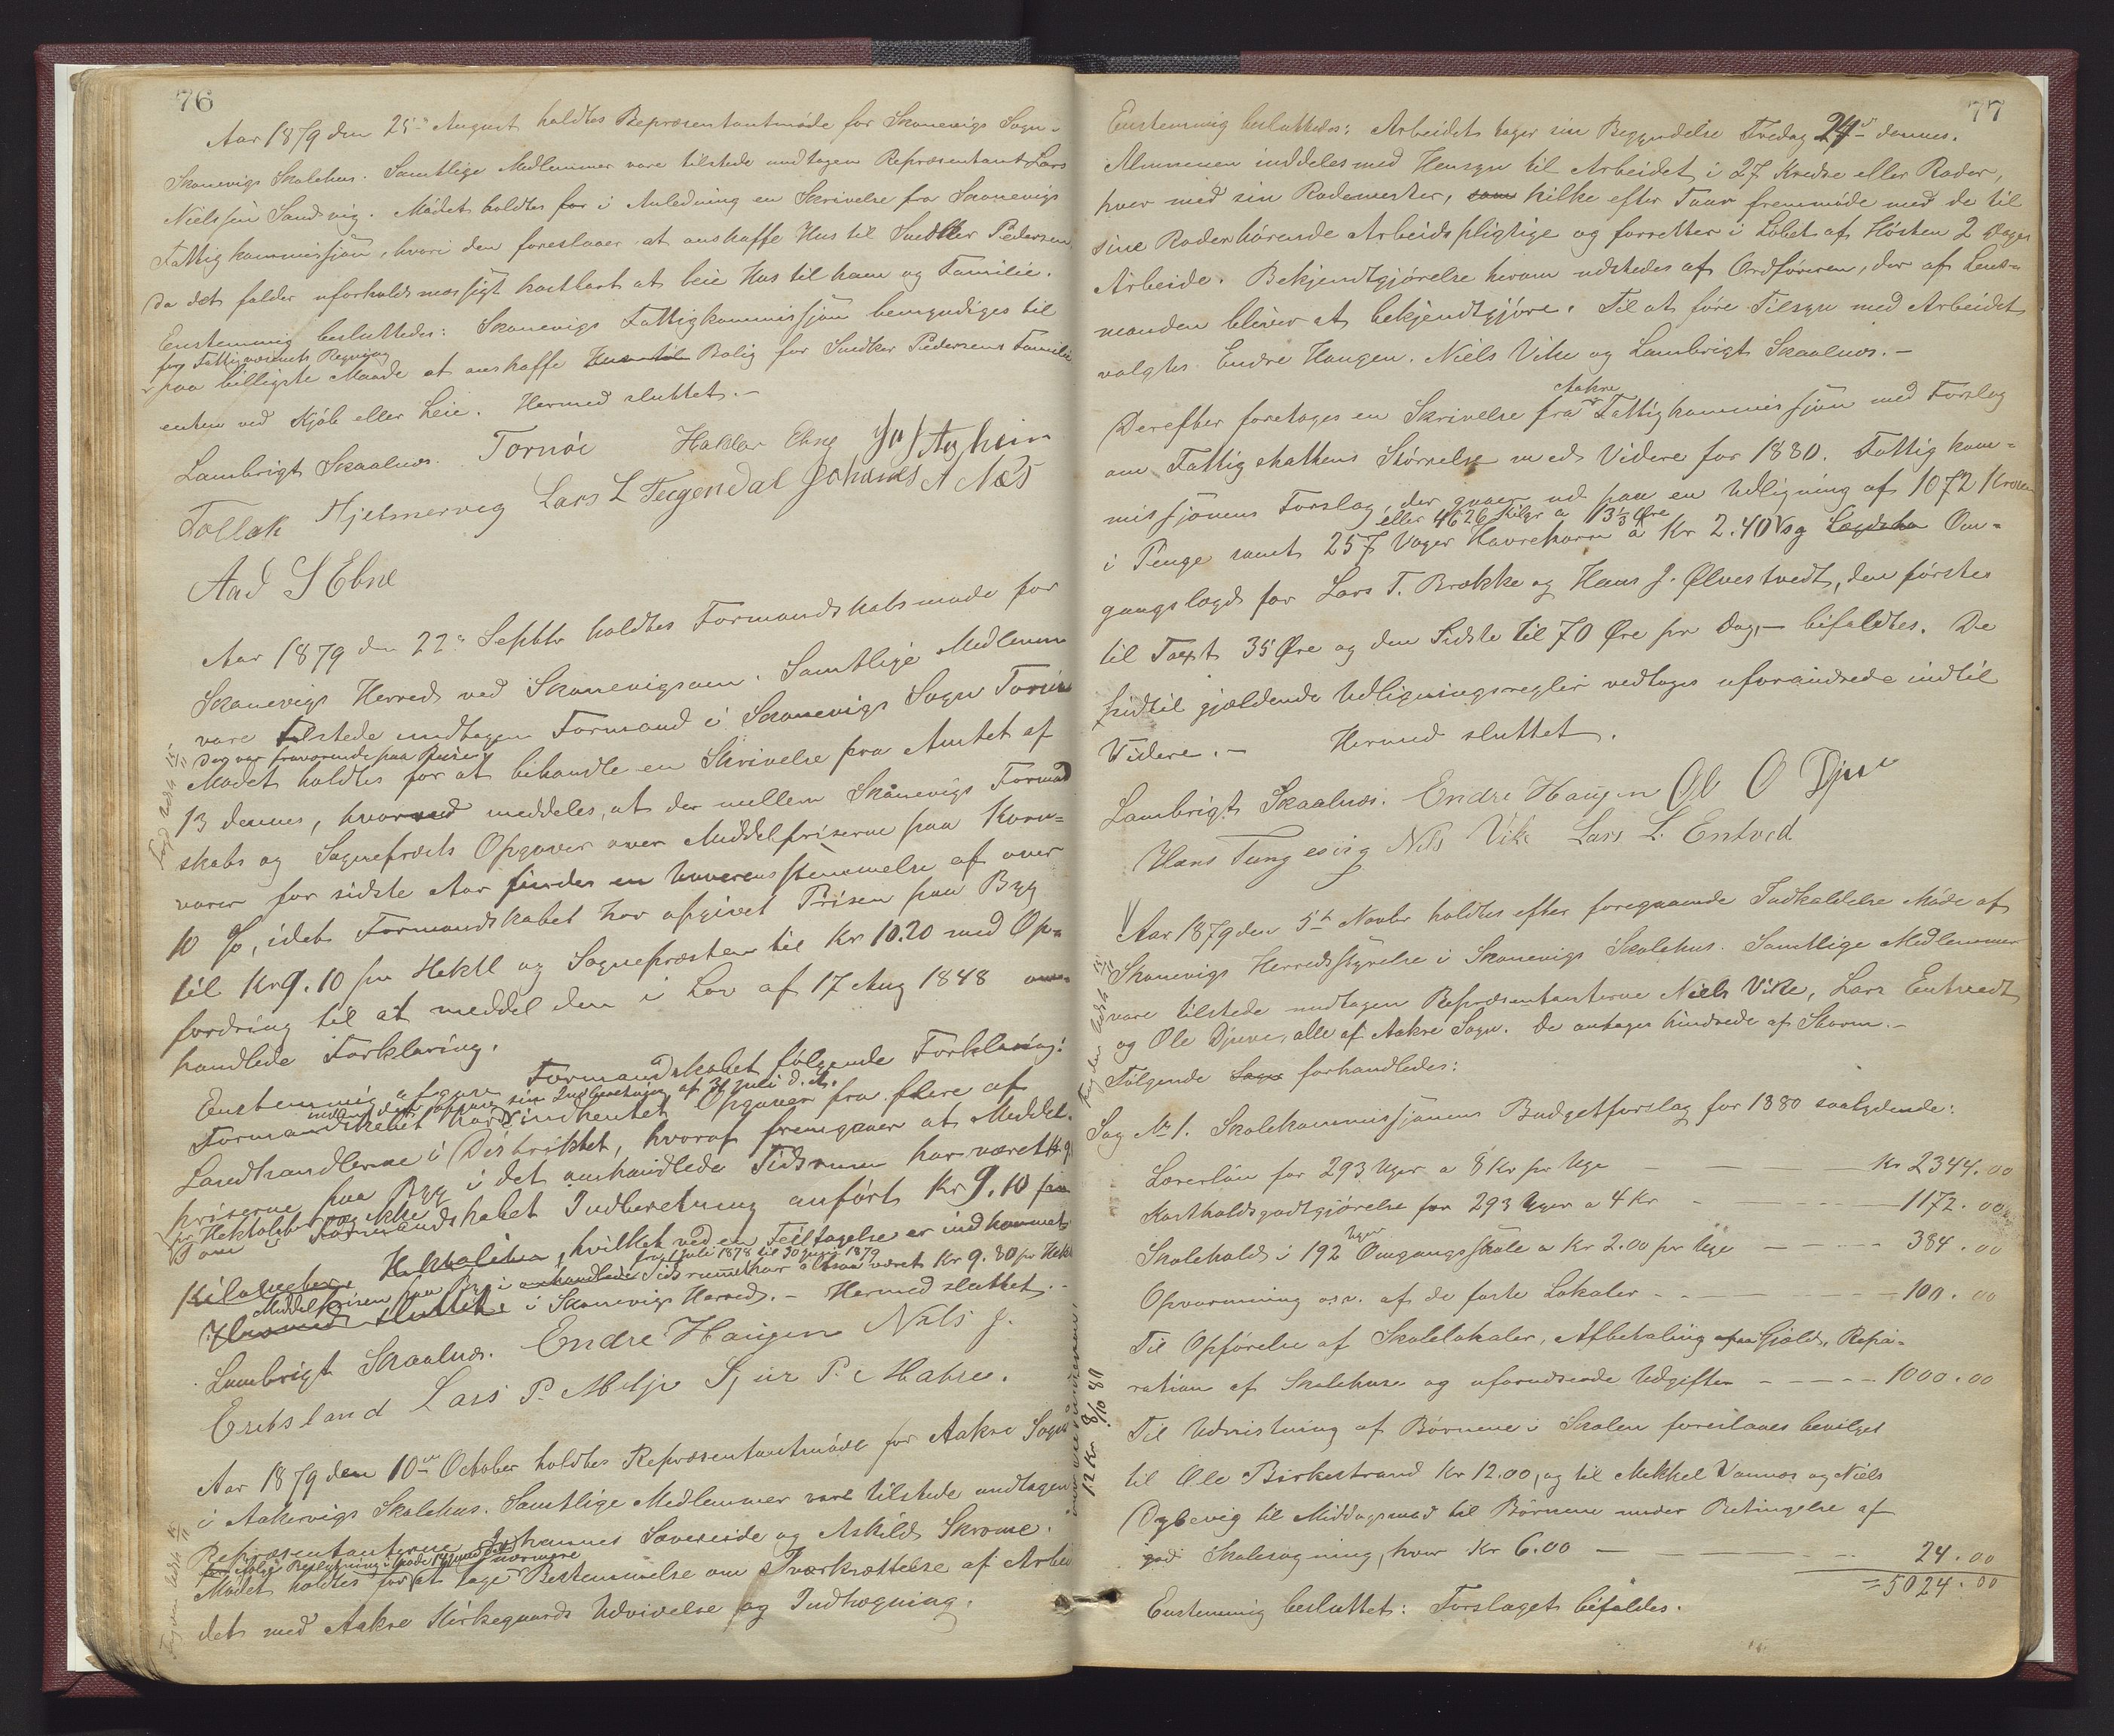 76
Aar 1879 den 25de August holdtes Repræsentantmøde for Skonevigs Sogn i
Skonevigs Skolehus. Samtlige Medlemmer vare tilstede undtagen Repræsentant Lars
Nielssen Sandvig. Mødet holdtes for i Anledning en Skrivelse fra Skonevigs
Fattigkommissjon, hvori den foreslaaer at anskaffe Hus til Snedker Pedersen
da det falder uforholdsmæssigt kostbart at leie Hus til ham og Familie.
Enstemmig besluttedes: Skonevigs Fattigkommissjon bemyndiges til
for Fattigvæsenets Regning
paa billigste Maade at anskaffe Hus til Bolig for Snedker Pedersens Familie
enten ved Kjøb eller Leie. Hermed sluttet.-
Lambrigt Skaalnæs. Tornøe Haldor Ebne
Tollak Hjelmerveg Lars L Teigendal Johannes A Næs
Aad S Ebne
Aar 1879 den 22de Septbr holdtes Formandskabsmøde for
Skonevigs Herred ved Skonevigsøen. Samtlige Medlemm
vare tilstede undtagen Formand i Skonevigs Sogn Tornøe
Der var fraværende paa Reise
Mødet holdtes for at behandle en Skrivelse fra Amtet af
13 dennes, hvorved meddeles, at der mellem Skånevigs Formand
skabs og Sognepræsts Opgaver over Middelpriserne paa Korn=
varer for sidste Aar findes en Uoverensstemmelse af over
10 %, idet Formandskabet har opgivet Prisen paa Byg
til Kr 9.10 pr Hektl og Sognepræsten til Kr 10.20 med Op=
fordring til at meddel den i Lov af 17 Aug 1848 om=
handlede Forklaring.
Enstemmig afgaves Formandskabet følgende Forklaring:
inden det afgav sin Indberetning af 31 Juli d. A.
Formandskabet havde indhentet Opgaver fra flere af
Landhandlerne i Distriktet, hvoraf fremgaaer at Middel=
priserne paa Byg i det omhandlede Tidsrum har været Kr 9
pr Hektoliter og ikke
som i Formandskabet Indberetning anført Kr 9.10 pr
Kilo Hektoliter, hvilket ved en Feiltagelse er indkommet
fra 1 Juli 1878 til 30 Juni 1879
Middelprisen paa Byg i omhandlede Tidsrum har altsaa været Kr 9.80 pr Hekl
Hermed sluttet i Skonevigs Herred.- Hermed sluttet.-
Lambrigt Skaalnæs. Endre Haugen Nils J.
Eritsland Lars P. Milje Sjur P. Matre.
Aar 1879 den 10de October holdtes Repræsentantmøde for Aakre Sogn
i Aakervigs Skolehus. Samtlige Medlemmer vare tilstede undtagen
Repræsentanterne Johannes Sævereide og Askild Skromme.
Mødet holdtes for at tage nærmere Bestemmelse om Iværksættelse af Arbei
det med Aakre Kirkegaards Udvidelse og Indhegning.
77
Enstemmig besluttedes: Arbeidet tager sin Begyndelse Fredag 24de dennes.
Almuen inddeles med Hensyn til Arbeidet i 27 Kredse eller Roder,
hver med sin Rodemester, som hvilke efter Tour fremmøde med de til
sine Roder hørende Arbeidspligtige og forretter i Løbet af Høsten 2 Dages
Arbeide. Bekjendtgjørelse herom udstedes af Ordføreren, der af Lens=
manden bliver at bekjendtgjøre. Til at føre Tilsyn med Arbeidet
valgtes Endre Haugen. Niels Vike og Lambrigt Skaalnæs.-
Derefter foretages en Skrivelse fra Aakre Fattigkommissjon med Forslag
om Fattigskattens Størrelse med Videre for 1880. Fattigkom=
missjonens Forslag, der gaaer ud paa en Udligning af 1072 Kroner
eller 4626 Kilgr a 13 1/3 Øre
i Penge samt 257 Voger Havrekorn a Kr 2.40 og Lægdsho Om=
gangslægd for Lars T. Brække og Hans J. Ølvestvedt, den første
til Taxt 35 Øre og den Sidste til 70 Øre pr Dag,- bifaldtes. De
hidtil gjældende Udligningsregler vedtages uforandrede indtil
Videre.- Hermed sluttet.
Lambrigt Skaalnæs. Endre Haugen Ole O Djuve
Hans Tungesvig Nils Vike Lars L. Entved
Aar 1879 den 5te Novbr holdtes efter foregaaende Indkaldelse Møde af
Skonevigs Herredsstyrelse i Skonevigs Skolehus. Samtlige Medlemmer
vare tilstede undtagen Repræsentanterne Niels Vike, Lars Entvedt
og Ole Djuve, alle af Aakre Sogn. De antages hindrede af Storm.-
Følgende Sager forhandledes:
Sag No 1. Skolekommissjonens Budgetforslag for 1880 saalydende:
Lærerløn for 293 Uger a 8 Kr pr Uge - - Kr 2344.00
Kostholdsgodtgjørelse for 293 Uger a 4 Kr - - 1172.00
Skolehold i 192 Uger Omgangsskole a Kr 2.00 pr Uge - - 384.00
Opvarmning osv. af de faste Lokaler - - 100.00
Til Opførelse af Skolelokaler, Afbetaling paa Gjæld, Repa=
ration af Skolehuse og uforudseede Udgifter - - 1000.00
Til Udrustning af Børnene i Skolen foreslaaes bevilget
til Ole Birkestrand Kr 12.00, og til Mikkel Vannes og Niels
Dybevig til Middagsmad til Børnene under Betingelse af
god Skolesøgning, hver Kr 6.00 - - 24.00
= 5024.00
Enstemmig besluttet: Forslaget bifaldes.
12 Kr 8/10 80